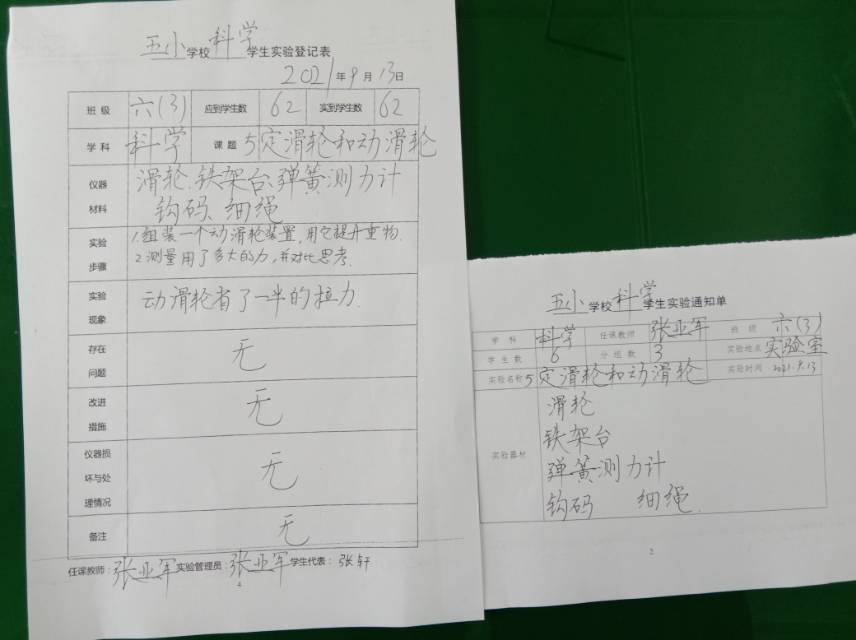 五小学校科学学生实验登记表
2021年9月13日
班级 六(3) 应到学生数 62 实到学生数 62
学科 科学 课题 5定滑轮和动滑轮
仪器材料 滑轮、铁架台、弹簧测力计
钩码、细绳
实验步骤 1.组装一个动滑轮装置,用它提升重物.
2.测量用了多大的力,并对比思考.
实验现象 动滑轮省了一半的拉力.
存在问题 无
改进措施 无
仪器损坏与处理情况 无
备注 无
任课教师:张亚军 实验管理员:张亚军 学生代表:张轩
4
五小学校科学学生实验通知单
学科 科学 任课教师 张亚军 班级 六(3)
学生数 6 分组数 3 实验地点 实验室
实验名称 5定滑轮和动滑轮 实验时间 2021.9.13
实验器材 滑轮
铁架台
弹簧测力计
钩码 细绳
2